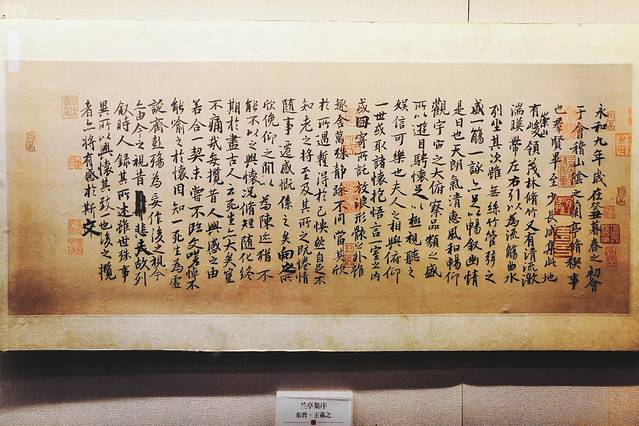 永和九年歲在癸丑暮春之初會
于會稽山陰之蘭亭脩稧事
也群賢畢至少長咸集此地
有崇山峻領茂林脩竹又有清流激
湍暎帶左右引以為流觴曲水
列坐其次雖無絲竹管弦之
盛一觴一詠亦足以暢敘幽情
是日也天朗氣清惠風和暢仰
觀宇宙之大俯察品類之盛
所以遊目騁懷足以極視聽之
娛信可樂也夫人之相與俯仰
一世或取諸懷抱悟言一室之內
或因寄所託放浪形骸之外雖
趣舍萬殊靜躁不同當其欣
於所遇蹔得於己怏然自足不
知老之將至及其所之既惓情
隨事遷感慨係之矣向之所
欣俛仰之閒以為陳迹猶不
能不以之興懷況脩短隨化終
期於盡古人云死生亦大矣豈
不痛哉每攬昔人興感之由
若合一契未嘗不臨文嗟悼不
能喻之於懷固知一死生為虛
誕齊彭殤為妄作後之視今
亦由今之視昔悲夫故列
敘時人錄其所述雖世殊事
異所以興懷其致一也後之攬
者亦將有感於斯文
兰亭集序
东晋·王羲之